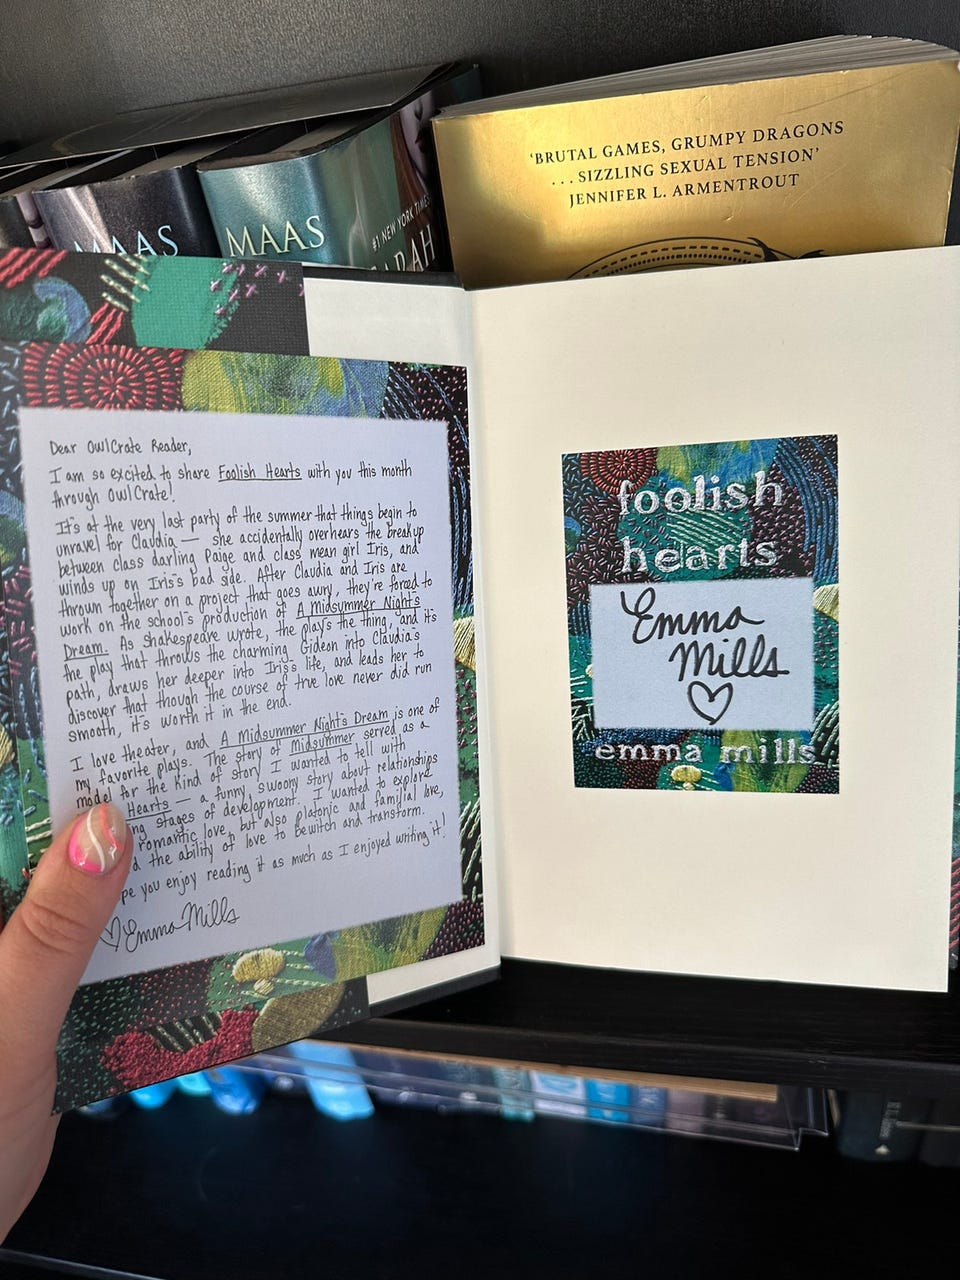 'BRUTAL GAMES, GRUMPY DRAGONS
... SIZZLING SEXUAL TENSION'
JENNIFER L. ARMENTROUT
MAAS
MAAS
#1 NEW YORK TIMES
ARAH
Dear OwlCrate Reader,
I am so excited to share Foolish Hearts with you this month
through OwlCrate!
It's at the very last party of the summer that things begin to
unravel for Claudia — she accidentally overhears the breakup
between class darling Paige and class mean girl Iris, and
winds up on Iris's bad side. After Claudia and Iris are
thrown together on a project that goes awry, they're forced to
work on the school's production of A Midsummer Night's
Dream. As Shakespeare wrote, the play's the thing, and it's
the play that throws the charming Gideon into Claudia's
path, draws her deeper into Iris's life, and leads her to
discover that though the course of true love never did run
smooth, it's worth it in the end.
I love theater, and A Midsummer Night's Dream is one of
my favorite plays. The story of Midsummer served as a
model for the kind of story I wanted to tell with
Hearts — a funny, swoony story about relationships
ng stages of development. I wanted to explore
romantic love, but also platonic and familial love,
d the ability of love to bewitch and transform.
pe you enjoy reading it as much as I enjoyed writing it!
Emma Mills
foolish
hearts
Emma
Mills
emma mills